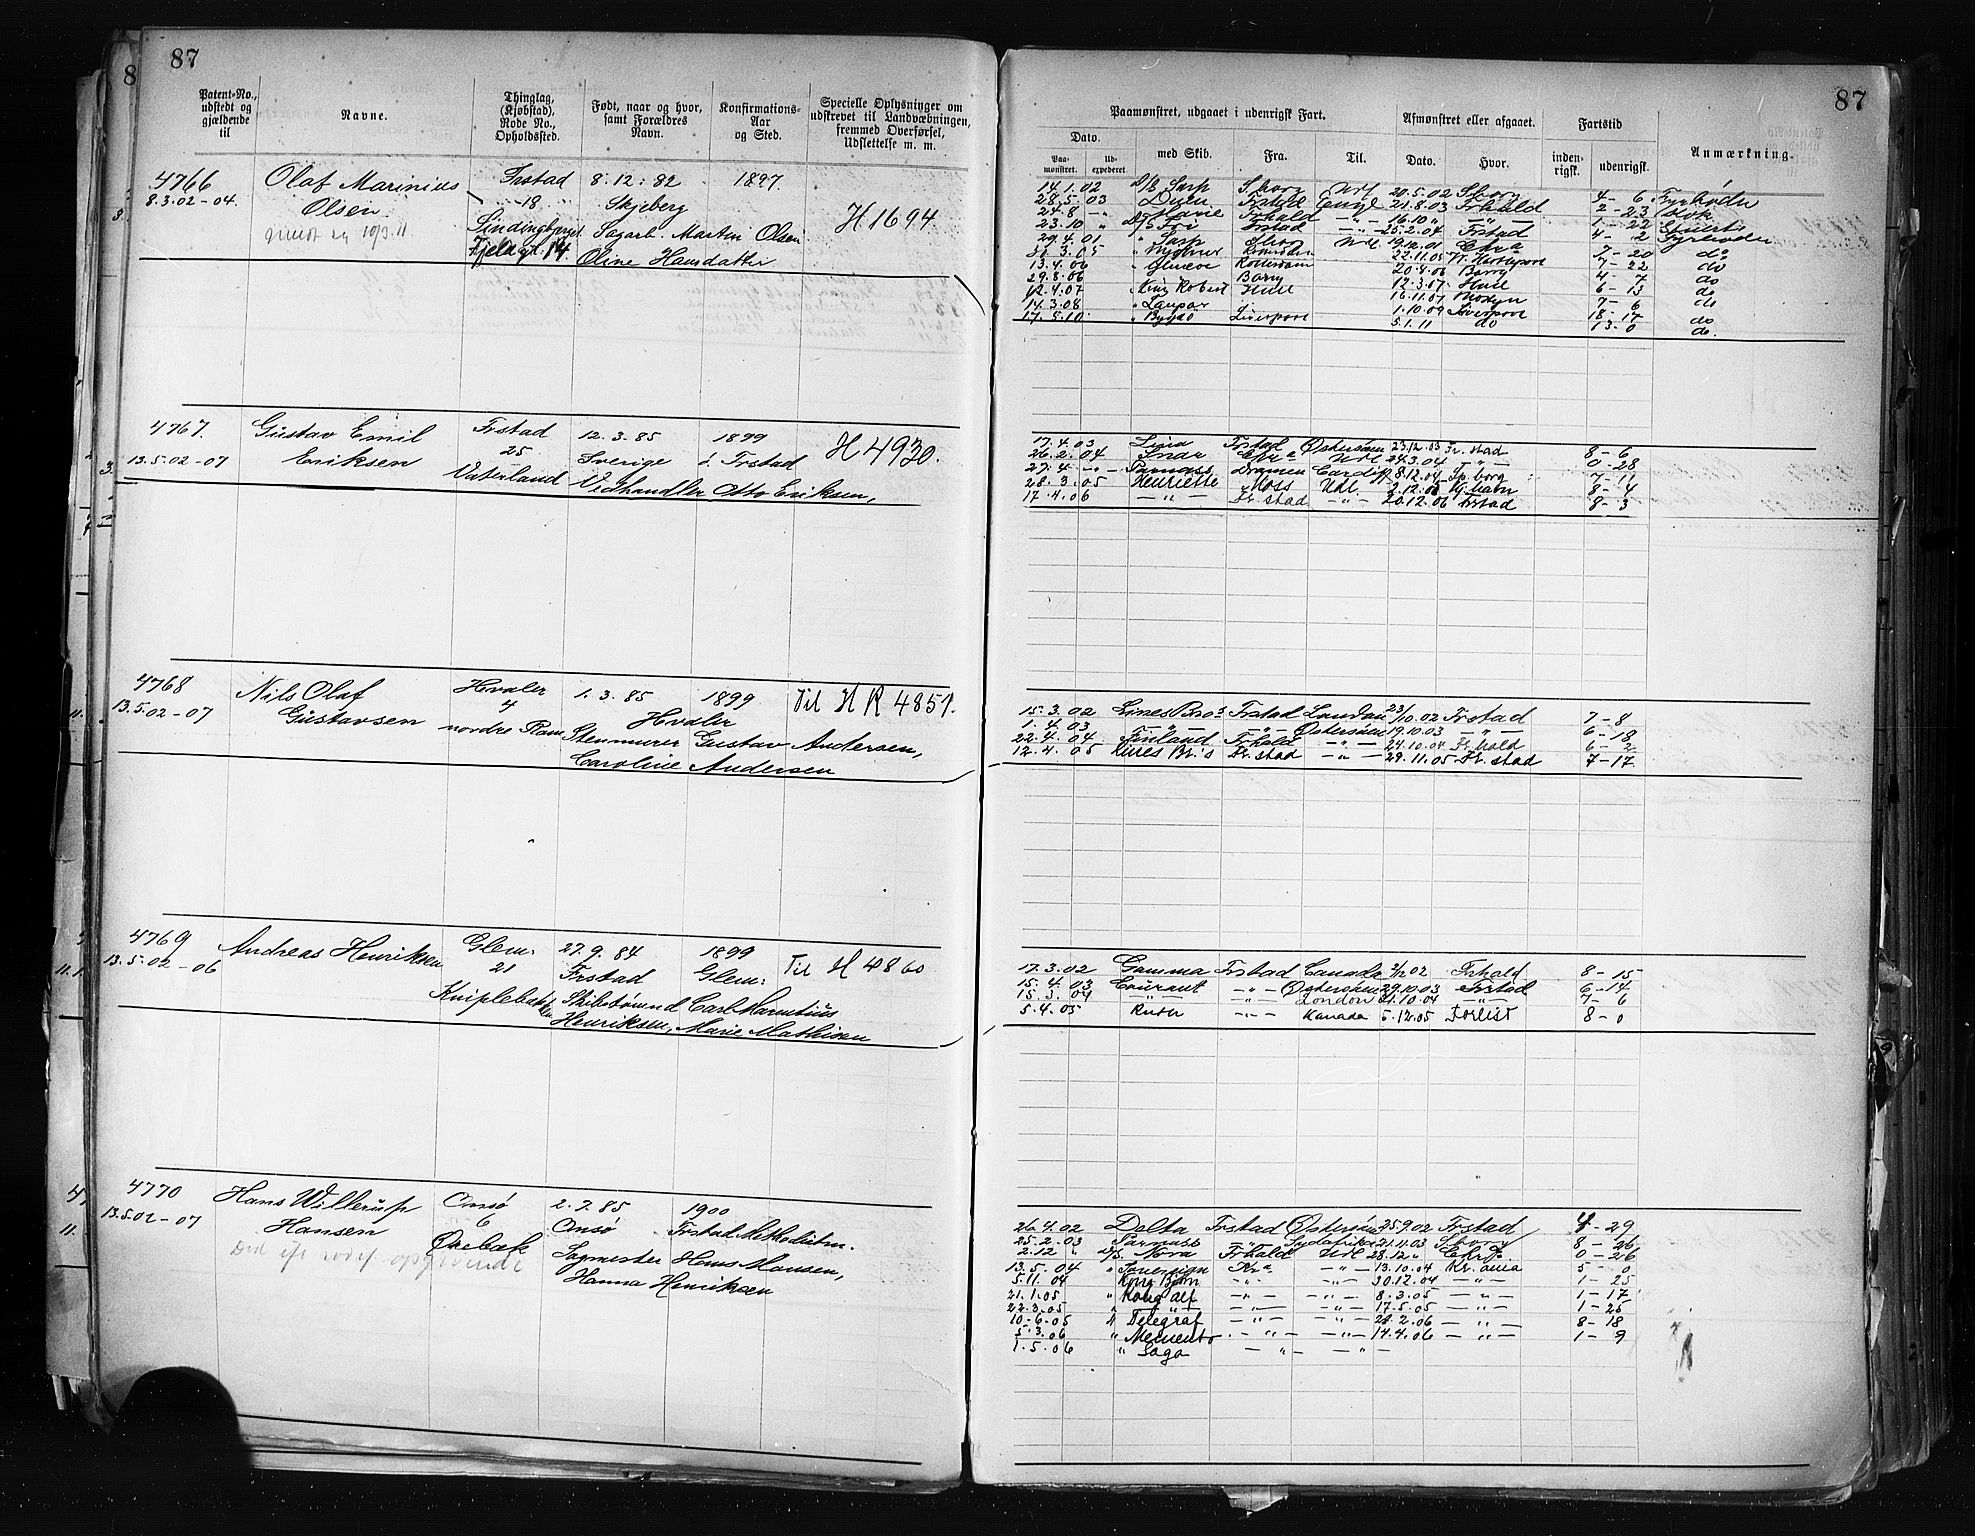 87
Patent-No., udstedt og gjældende til
Navne.
Thinglag, (Kjøbstad), Rode No., Opholdssted.
Født, naar og hvor, samt Forældres Navn.
Konfirmations-Aar og Sted.
Specielle Oplysninger om udskrevet til Landværningen, fremmed Overførsel, Udslettelse m. m.
4766 Olaf Marinius Frstad 8.12.82 1897
8.3.02-04 Olsen 18 Skjeberg H 1694
10/3.11 Sagarb. Martin Olsen
Oline Hansdatter
4767. Gustav Emil Frstad 12.3.85 1899 H 4930.
13.5.02-07 Eriksen 25 Sverige Frstad
Vaterland Vedhandler Otto Eriksen,
4768 Nils Olaf Hvaler 1.3.85 1899 Til H R 4851.
13.5.02-07 Gustavsen 4 Hvaler
nordre Stenmurer Gustav Andersen,
Caroline Andersen
4769 Andreas Henriksen Glem: 27.9.84 1899 Til H 4860
13.5.02-06 21 Frstad Glem:
Skibstømmd Carl
Henriksen, Marie Mathisen
4770 Hans Willerup Onsø 2.7.85 1900
13.5.02-07 Hansen 6 Onsø Frstad Methodistm.
Ørebæk Sagmester Hans Hansen,
Hanna Henriksen
87
Paamønstret, udgaaet i udenrigsk Fart.
Afmønstret eller afgaaet.
Fartstid
Anmærkning.
Dato.
Paamønstret.
Udexpederet.
med Skib.
Fra.
Til.
Dato.
Hvor.
indenrigsk.
udenrigsk.
14.1.02 D/S Sarp Sborg Udl 20.5.02 Sborg 4-6 Fyrbøder
28.5.03 Frhald Engl 21.8.03 Frhald 2-23 Kok
24.8 -"- Frhald -"- 16.10 " -"- 1-22
23.10 " D/S Frstad -"- 25.2.04 Frstad 4-2 Fyrbøder
29.4.01 " Sarp Sborg Udl 19.12.01 Chr.a 7-20 do
22.11.05 7-22 do
13.4.06 Rotterdam 20.8.06 Barry 4-7 do
29.8.06 " King Robert Barry 12.3.07 Hull 6-13 do
12.4.07 Hull 16.11.07 7-6 do
14.3.08 1.10.09 Liverpool 18-17 do
17.5.10 " Bygdø Liverpool 5.1.11 do 13-0 do.
17.4.03 Lina Frstad Østersøen 23/12.03 Fr.stad 8-6
26.2.04 Snar Chr.a Udl 24.3.04 -"- 0-28
27.4 -"- Parnass Dramen Cardiff 8.12.04 7-11
28.3.05 Henriette Moss Udl 2.12.05 8-4
17.4.06 -"- Fr.stad -"- 20.12.06 Frstad 8-3
15.3.02 Lines Bros Frstad London 23/10.02 Frstad 7-8
1.4.03 -"- -"- Østersøen 19.10.03 -"- 6-18
22.4.04 Finland Frhald -"- 24.10.04 Fr.hald 6-2
12.4.05 Lines Br.s Fr.stad -"- 29.11.05 Fr.stad 7-17
17.3.02 Gamma Frstad Canada 2/12 02 Frhald 8-15
15.4.03 Courant -"- Østersøen 29.10.03 Frstad 6-14
15.3.04 -"- -"- London 21.10.04 -"- 7-6
5.4.05 -"- Kanada 5.12.05 Forlist 8-0
26.4.02 Delta Frstad Østersøen 25.9.02 Frstad 4-29
25.2.03 Parnass -"- Sydafrika 21.11.03 Sborg 8-26
2.12 " D/S. Nova Frhald Udl 28.12 " Chr.a 0-26
13.5.04 " Sovereign Kr.a -"- 13.10.04 Kr.ania 5-0
5.11.04 " Kong Bjørn -"- 30.12.04 -"- 1-25
21.1.05 " Kong Alf -"- -"- 8.3.05 -"- 1-17
22.3.05 " -"- -"- -"- 17.5.05 -"- 1-25
10-6.05 " Telegraf -"- -"- 24.2.06 -"- 8-18
5.3.06 " Memento -"- -"- 14.4.06 -"- 1-9
1.5.06 " Saga -"- -"-